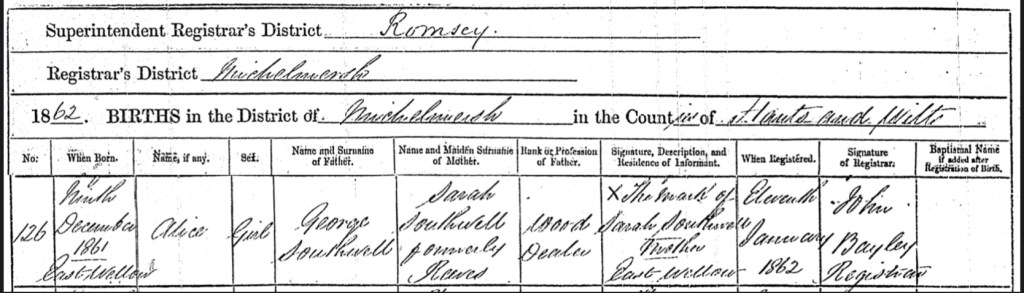 Superintendent Registrar's District Romsey.
Registrar's District Michelmersh
1862. BIRTHS in the District of Michelmersh in the Counties of Hants and Wilts
No: When Born. Name, if any. Sex. Name and Surname of Father. Name and Maiden Surname of Mother. Rank or Profession of Father. Signature, Description, and Residence of Informant. When Registered. Signature of Registrar. Baptismal Name if added after Registration of Birth.
126
Ninth
December
1861
East Wellow
Alice
Girl
George
Southwell
Sarah
Southwell
formerly
Wood
Dealer
X The mark of
Sarah Southwell
Mother
East Wellow
Eleventh
January
1862
John
Bayley
Registrar